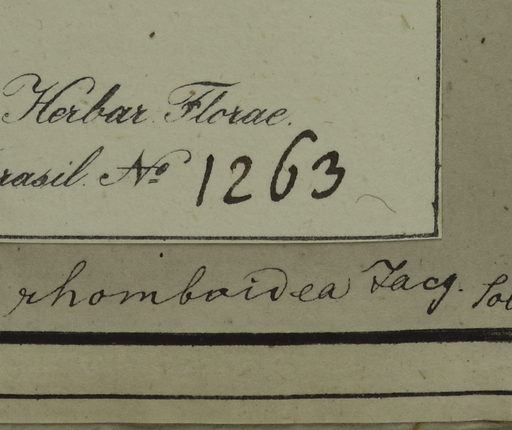 Herbar. Florae.
rasil. No 1263
rhomboidea Jacq.